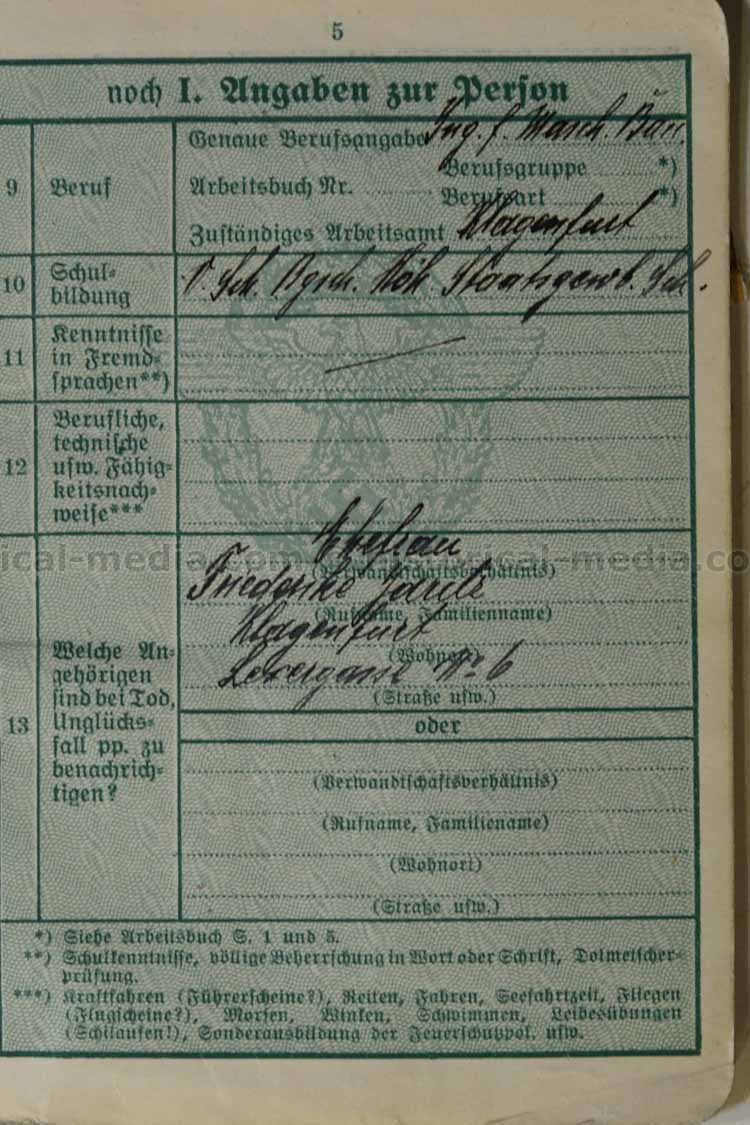 5
noch I. Angaben zur Person
9
Beruf
Genaue Berufsangabe Ing. f. Masch. Bau.
Berufsgruppe ........ *)
Arbeitsbuch Nr. ........ Berufsart ........ *)
Zuständiges Arbeitsamt Klagenfurt
10
Schul-
bildung
V. Sch. Bgsch. Höh. Staatsgewb. Sch.
11
Kenntnisse
in Fremd-
sprachen**)
12
Berufliche,
technische
usw. Fähig-
keitsnach-
weise***
13
Welche An-
gehörigen
sind bei Tod,
Unglücks-
fall pp. zu
benachrich-
tigen?
Ehefrau
(Verwandtschaftsverhältnis)
Friederike
(Rufname, Familienname)
Klagenfurt
(Wohnort)
No 6
(Straße usw.)
oder
(Verwandtschaftsverhältnis)
(Rufname, Familiename)
(Wohnort)
(Straße usw.)
*) Siehe Arbeitsbuch S. 1 und 5.
**) Schulkenntnisse, völlige Beherrschung in Wort oder Schrift, Dolmetscher-
prüfung.
***) Kraftfahren (Führerscheine?), Reiten, Fahren, Seefahrtzeit, Fliegen
(Flugscheine?), Morsen, Winken, Schwimmen, Leibesübungen
(Schilaufen!), Sonderausbildung der Feuerschutzpol. usw.